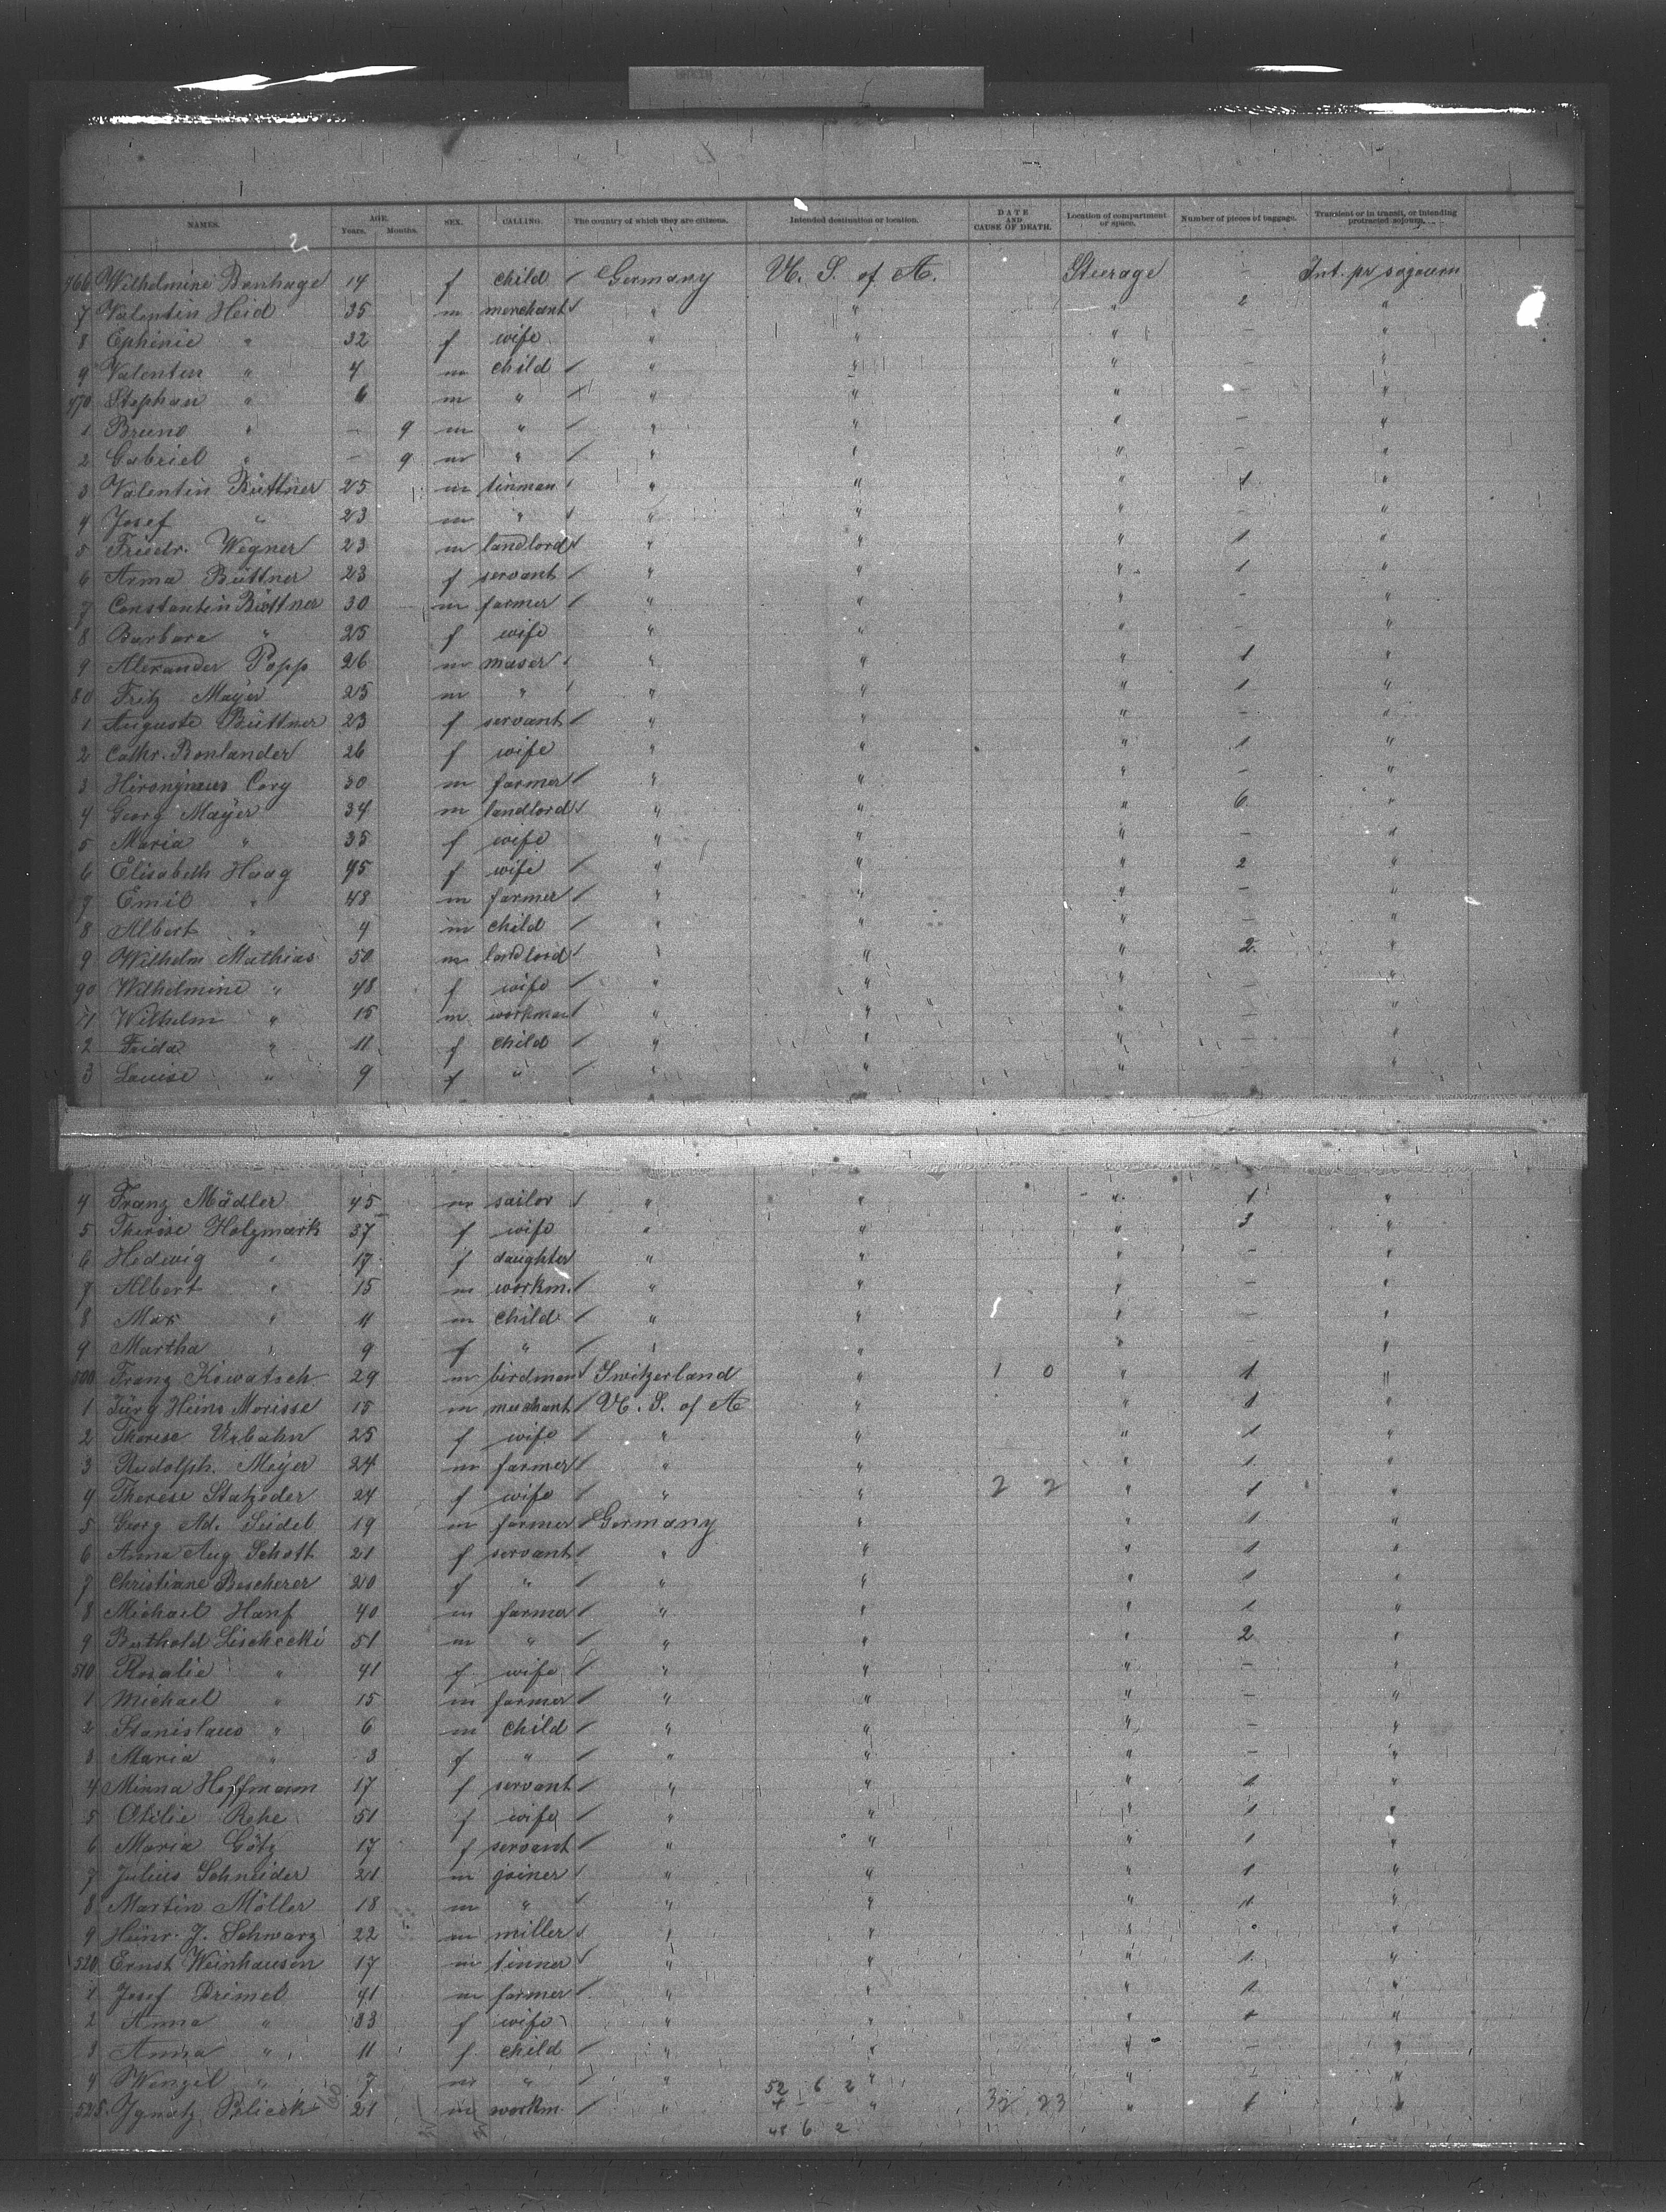 NAMES. AGE. Years. Months. SEX. CALLING. The country of which they are citizens. Intended destination or location. DATE AND CAUSE OF DEATH. Location of compartment or space. Number of pieces of baggage. Transient or in transit, or intending protracted sojourn.
2
466 Wilhelmine Banhage 14 f child / Germany U. S. of A. Steerage - Int. pr sojourn
7 Valentin Heid 35 m merchant / " " " 2 "
8 Ephinie " 32 f wife " " " - "
9 Valentin " 4 m child / " " " - "
470 Stephan " 6 m " / " " " - "
1 Bruno " - 9 m " / " " " - "
2 Gabriel " - 9 m " / " " " - "
3 Valentin Büttner 25 m tinman / " " " 1 "
4 Josef " 23 m " / " " " - "
5 Friedr. Wegner 23 m landlord / " " " 1 "
6 Anna Büttner 23 f servant / " " " 1 "
7 Constantin Büttner 30 m farmer / " " " - "
8 Barbara " 25 f wife " " " - "
9 Alexander Popp 26 m maser / " " " 1 "
80 Fritz Mayer 25 m " / " " " 1 "
1 Auguste Büttner 23 f servant / " " " - "
2 Cathr. Bonlander 26 f wife " " " 1 "
3 Hironymus Cory 30 m farmer / " " " - "
4 Georg Mayer 34 m landlord / " " " 6 "
5 Maria " 35 f wife " " " - "
6 Elisabeth Haag 45 f wife / " " " 2 "
7 Emil " 48 m farmer / " " " - "
8 Albert " 4 m child / " " " - "
9 Wilhelm Mathias 50 m landlord / " " " 2 "
90 Wilhelmine " 48 f wife / " " " - "
1 Wilhelm " 15 m workman / " " " - "
2 Frida " 11 f child / " " " - "
3 Louise " 9 f " / " " " - "
4 Franz Mädler 45 m sailor / " " " 1 "
5 Therese Holzmark 37 f wife " " " 3 "
6 Hedwig " 17 f daughter " " " - "
7 Albert " 15 m workm. / " " " - "
8 Max " 11 m child " " " - "
9 Martha " 9 f " / " " " - "
500 Franz Kowatsch 29 m birdman / Switzerland " 1 0 " 1 "
1 Jürg Heinr Morisse 15 m merchant / U. S. of A " " 1 "
2 Therese Urbahn 25 f wife / " " " 1 "
3 Rudolph. Meyer 24 m farmer / " " " 1 "
4 Therese Statzeder 24 f wife / " " 2 2 " 1 "
5 Georg Ad. Seidel 19 m farmer / Germany " " 1 "
6 Anna Aug. Schott 21 f servant / " " " 1 "
7 Christiane Bescherer 20 f " / " " " 1 "
8 Michael Hanf 40 m farmer / " " " 1 "
9 Berthold Lischecki 51 m " / " " " 2 "
510 Rosalie " 41 f wife / " " " - "
1 Michael " 15 m farmer / " " " - "
2 Stanislaus " 6 m child / " " " - "
3 Maria " 3 f " / " " " - "
4 Minna Hoffmann 17 f servant / " " " 1 "
5 Otilie Rehe 51 f wife / " " " 1 "
6 Maria Götz 17 f servant / " " " 1 "
7 Julius Schneider 21 m joiner / " " " 1 "
8 Martin Möller 18 m " / " " " 1 "
9 Heinr. J. Schwarz 22 m miller / " " " "
520 Ernst Weinhausen 17 m tinner / " " " 1 "
1 Josef Drimel 41 m farmer / " " " 1 "
2 Anna " 33 f wife " " " 1 "
3 Anna " 11 f child / " " " - "
4 Wenzel " 7 m " / " " " - "
52 6 2
525. Ignatz 21 m workm. / " " 32 23 " 1 "
48 6 2